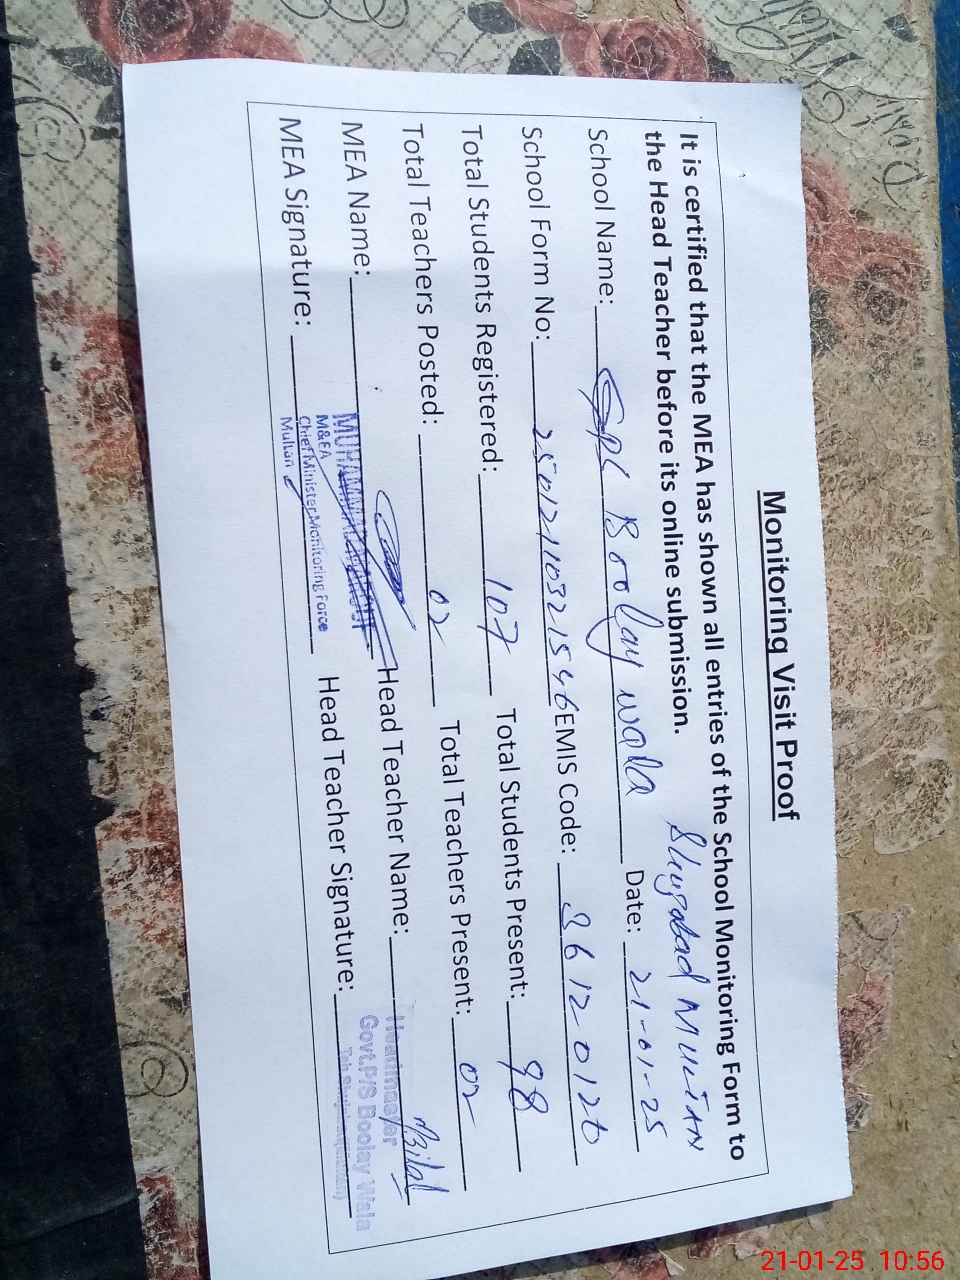 Monitoring Visit Proof
It is certified that the MEA has shown all entries of the School Monitoring Form to
the Head Teacher before its online submission.
Shujabad Multan
School Name: GPS Boolay wala Date: 21-01-25
School Form No: 2501211032 1546 EMIS Code: 36120120
Total Students Registered: 107 Total Students Present: 98
Total Teachers Posted: 02 Total Teachers Present: 02
MEA Name: Head Teacher Name: M Bilal
MUHAMMAD
M&EA
Chief Minister Monitoring Force
Multan
Headmaster
Govt.P/S Boolay Wala
MEA Signature: Head Teacher Signature:
21-01-25 10:56